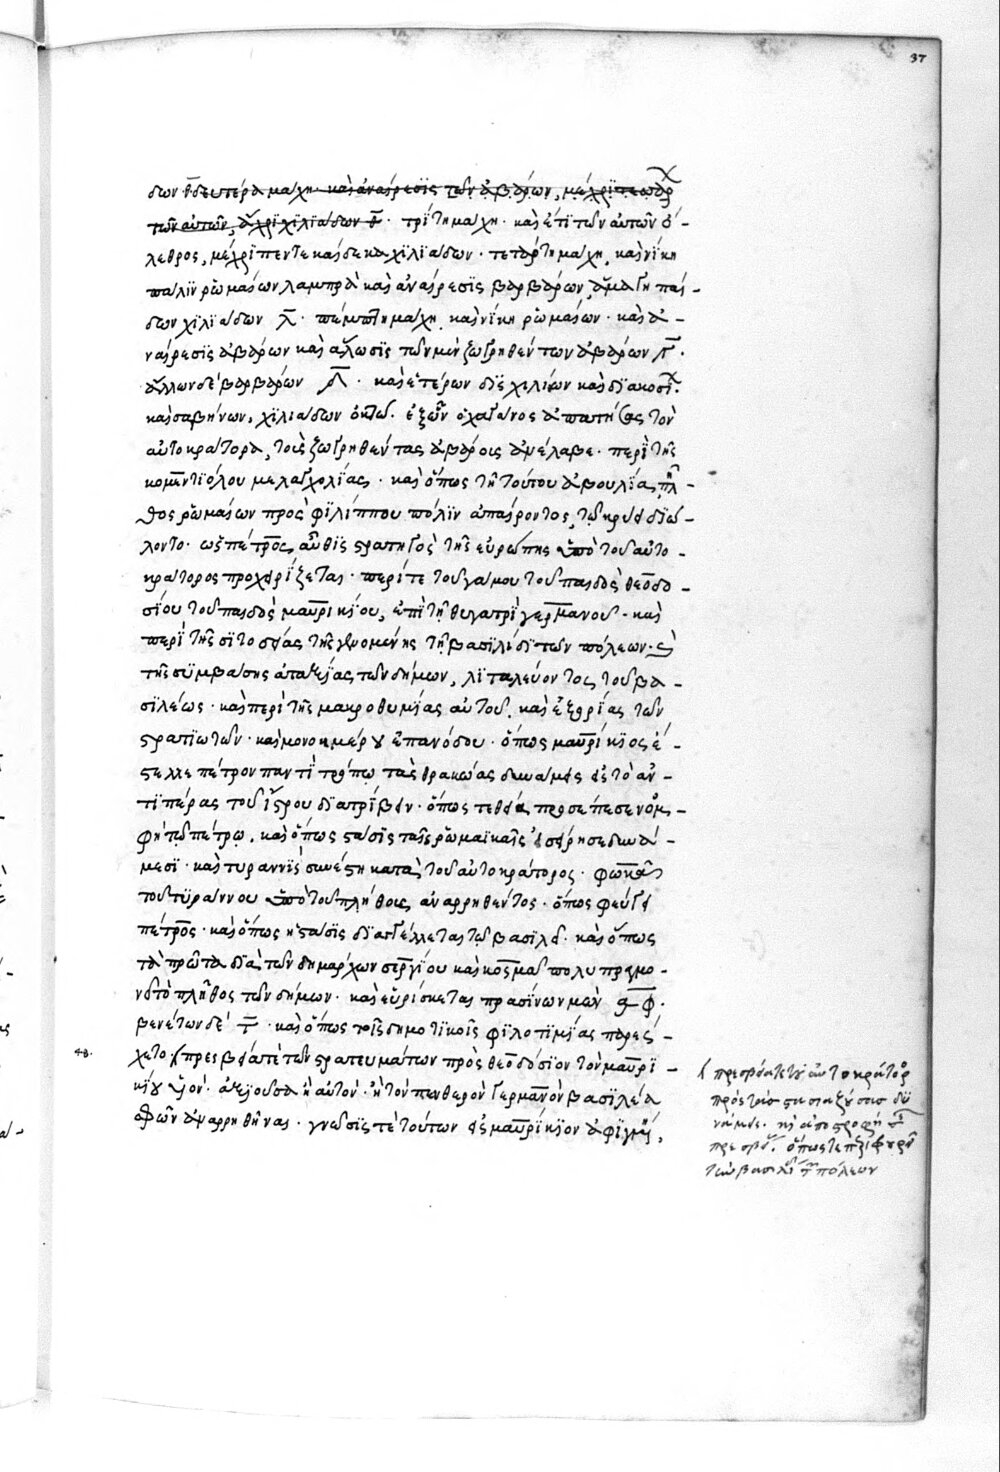 37
δων θ̄ δευτέρα μάχη· καὶ ἀναίρεσϊς τῶν ἀβάρων, μέχρϊ τεσσάρ
τῶν αὐτῶν, ἄχρϊ χϊλϊάδων θ̄· τρίτη μάχη· καὶ ἔτϊ τῶν αὐτῶν ὄ-
λεθρος, μέχρϊ πέντε καίδεκα χϊλϊάδων· τετάρτη μάχη, καὶ νίκη
πάλϊν ῥωμαίων λαμπρὰ καὶ ἀναίρεσϊς βαρβάρων, ἅμα γῃ παί-
δων χϊλϊάδων λ̄· πέμπτη μάχη καὶ νίκη ῥωμαίων· καὶ ἀ-
ναίρεσϊς ἀβάρων καὶ ἅλωσϊς τῶν μὲν ζωγρηθέντων ἀβάρων γ̄·
ἄλλων δὲ βαρβάρων · καὶ ἑτέρων δϊσχιλίων καὶ δϊακοσί·
καὶ σλαβήνων, χϊλϊάδων ὀκτώ· ἐξ ὧν ὁ χαγάνος ἀπατήσας τὸν
αὐτοκράτορα, τοὺς ζωγρηθέντας ἀβάρους ἀνέλαβε· περὶ τῆς
κομεντϊόλου μελαγχολίας· καὶ ὅπως τῇ τούτου ἀβουλίᾳ πλῆ-
θος ῥωμαίων πρὸς φϊλίππου πόλϊν ἀπαίροντος, τῷ κρύει δϊώ-
λοντο· ὡς πέτρος αὖθϊς στρατηγὸς τῆς εὐρώπης ὑπὸ τοῦ αὐτο-
κράτορος προχειρίζεται· περί τε τοῦ γάμου τοῦ παιδὸς θεοδο-
σίου τοῦ παιδὸς μαυρικίου, ἐπὶ τῇ θυγατρὶ γερμανοῦ· καὶ
περὶ τῆς σϊτοδείας τῆς γενομένης τῇ βασϊλίδϊ τῶν πόλεων· κ
τῆς συμβάσης ἀταξίας τῶν δήμων, λϊταϊεύοντος τοῦ βα-
σϊλέως· καὶ περὶ τῆς μακροθυμίας αὐτοῦ, καὶ ἐξορίας τῶν
στρατϊωτῶν· καὶ μονοημέρου ἐπανόδου· ὅπως μαυρίκϊος ἔ-
στελλε πέτρον παντὶ τρόπῳ τὰς θρακῴας δυνάμεις εἰς τὸ ἀν-
τϊπέρας τοῦ ἴστρου δϊατρίβειν· ὅπως τε θεία προσέπεσεν ὀμ-
φὴ τῷ πέτρῳ· καὶ ὅπως στάσϊς ταῖς ῥωμαϊκαῖς εἰσέφρησε δυνά-
μεσϊ· καὶ τυραννὶς συνέστη κατὰ τοῦ αὐτοκράτορος· φωκᾶ
τοῦ τυράννου ὑπὸ τοῦ πλήθους ἀναρρηθέντος· ὅπως φεύγει
πέτρος· καὶ ὅπως ἡ στάσϊς δϊαγγέλλεται τῷ βασϊλεῖ· καὶ ὅπως
τὰ πρῶτα δϊὰ τῶν δημάρχων σεργίου καὶ κοσμᾶ πολυπραγμο-
νεῖ τὸ πλῆθος τῶν δήμων· καὶ εὑρίσκεται πρασίνων μὲν ͵α φ̄·
βενέτων δὲ · καὶ ὅπως τοῖς δημοτϊκοῖς φϊλοτϊμίας παρεί-
χετο· πρεσβεία τὲ τῶν στρατευμάτων πρὸς θεοδόσϊον τὸν μαυρϊ-
κίου υἱόν· ἀξϊοῦσα ἢ αὐτὸν· ἢ τὸν πενθερὸν γερμανὸν βασϊλέα
σφῶν ἀναρρηθῆναι· γνῶσϊς τὲ τούτων εἰς μαυρίκϊον ἀφϊγμένη,
πρεσβεία τὲ τοῦ αὐτοκράτορ
πρὸς τὰς στασιαζούσας δυ
νάμεις· κ ἀποστροφὴ τ
πρεσβ· ὅπως τε
τῶ βασιλί τ πόλεων